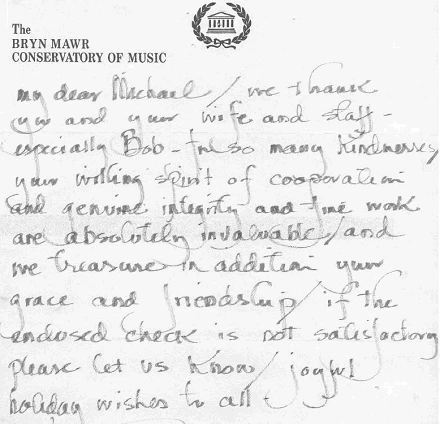 The
BRYN MAWR
CONSERVATORY OF MUSIC
my dear Michael / we thank
you and your wife and staff -
especially Bob - for so many kindnesses,
your willing spirit of cooperation
and genuine integrity and fine work
are absolutely invaluable / and
we treasure in addition your
grace and friendship / if the
endorsed check is not satisfactory
please let us know / joyful
holiday wishes to all -